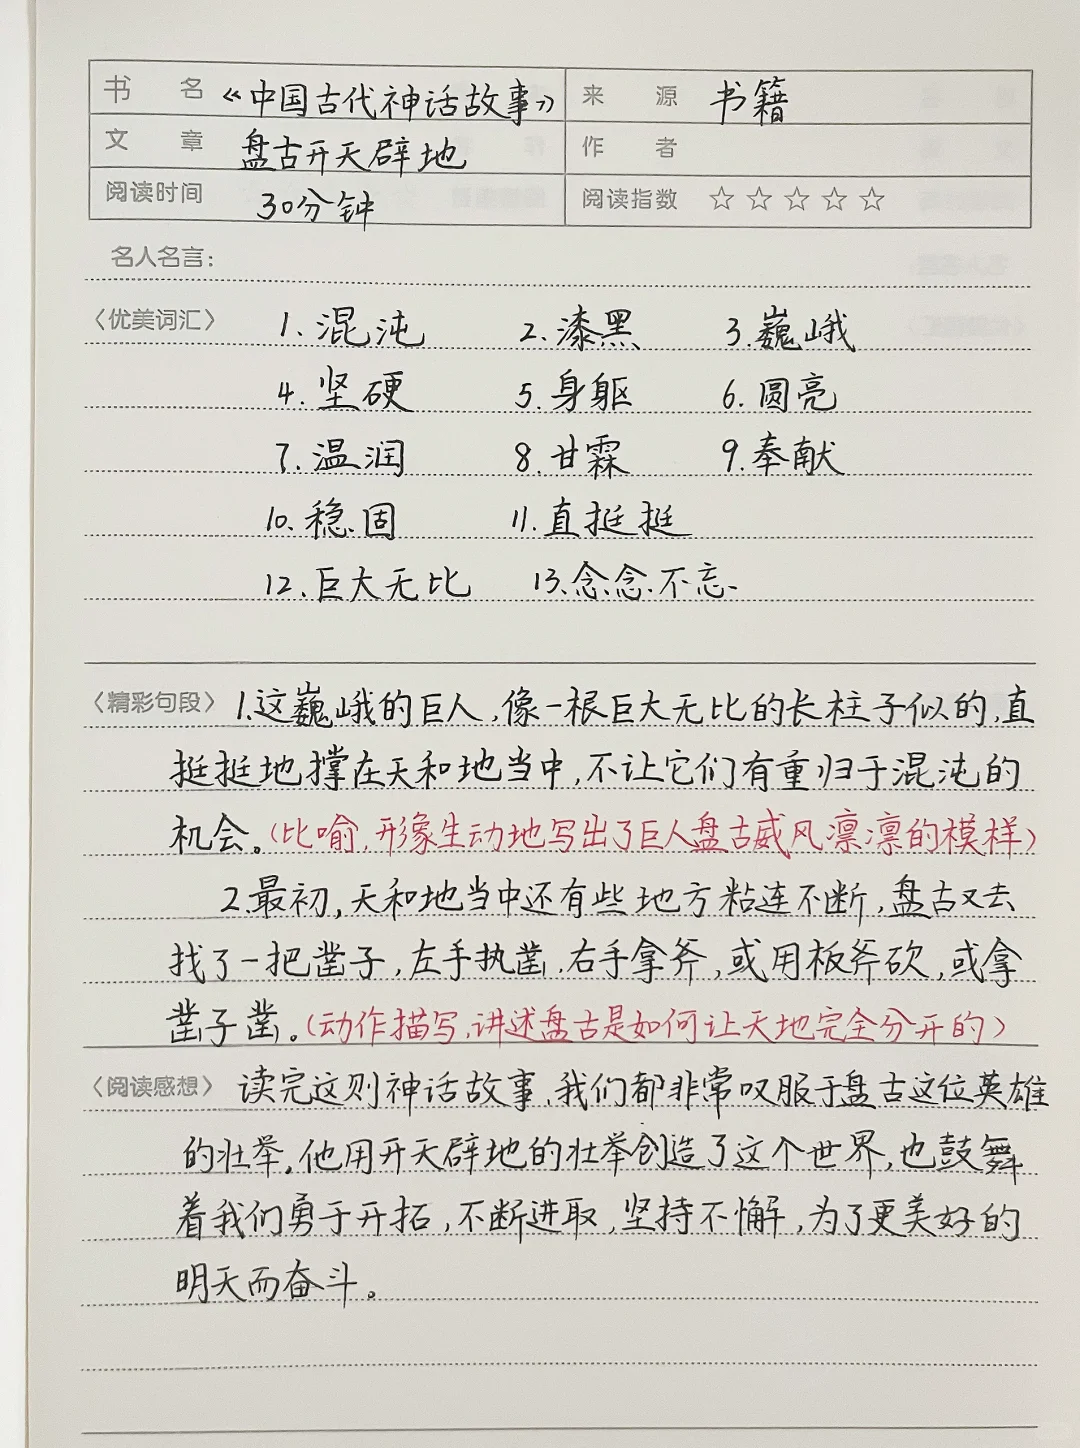 书 名 《中国古代神话故事》 来 源 书籍
文 章 盘古开天辟地 作 者
阅读时间 30分钟 阅读指数 ☆☆☆☆☆
名人名言：
〈优美词汇〉 1.混沌 2.漆黑 3.巍峨
4.坚硬 5.身躯 6.圆亮
7.温润 8.甘霖 9.奉献
10.稳固 11.直挺挺
12.巨大无比 13.念念不忘
〈精彩句段〉 1.这巍峨的巨人,像一根巨大无比的长柱子似的,直
挺挺地撑在天和地当中,不让它们有重归于混沌的
机会。(比喻,形象生动地写出了巨人盘古威风凛凛的模样)
2.最初,天和地当中还有些地方粘连不断,盘古又去
找了一把凿子,左手执凿,右手拿斧,或用板斧砍,或拿
凿子凿。(动作描写,讲述盘古是如何让天地完全分开的)
〈阅读感想〉 读完这则神话故事,我们都非常叹服于盘古这位英雄
的壮举,他用开天辟地的壮举创造了这个世界,也鼓舞
着我们勇于开拓,不断进取,坚持不懈,为了更美好的
明天而奋斗。